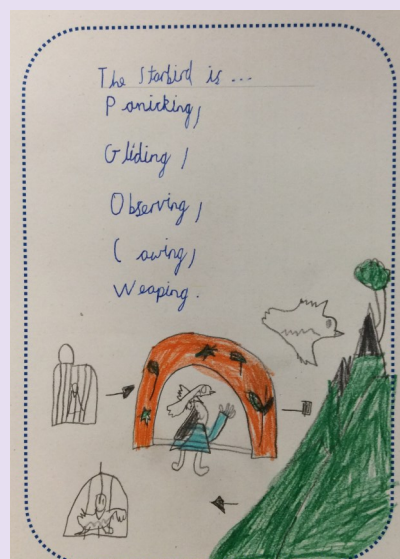 The Starbird is ...
Panicking,
Gliding,
Observing,
Cawing,
Weaping.